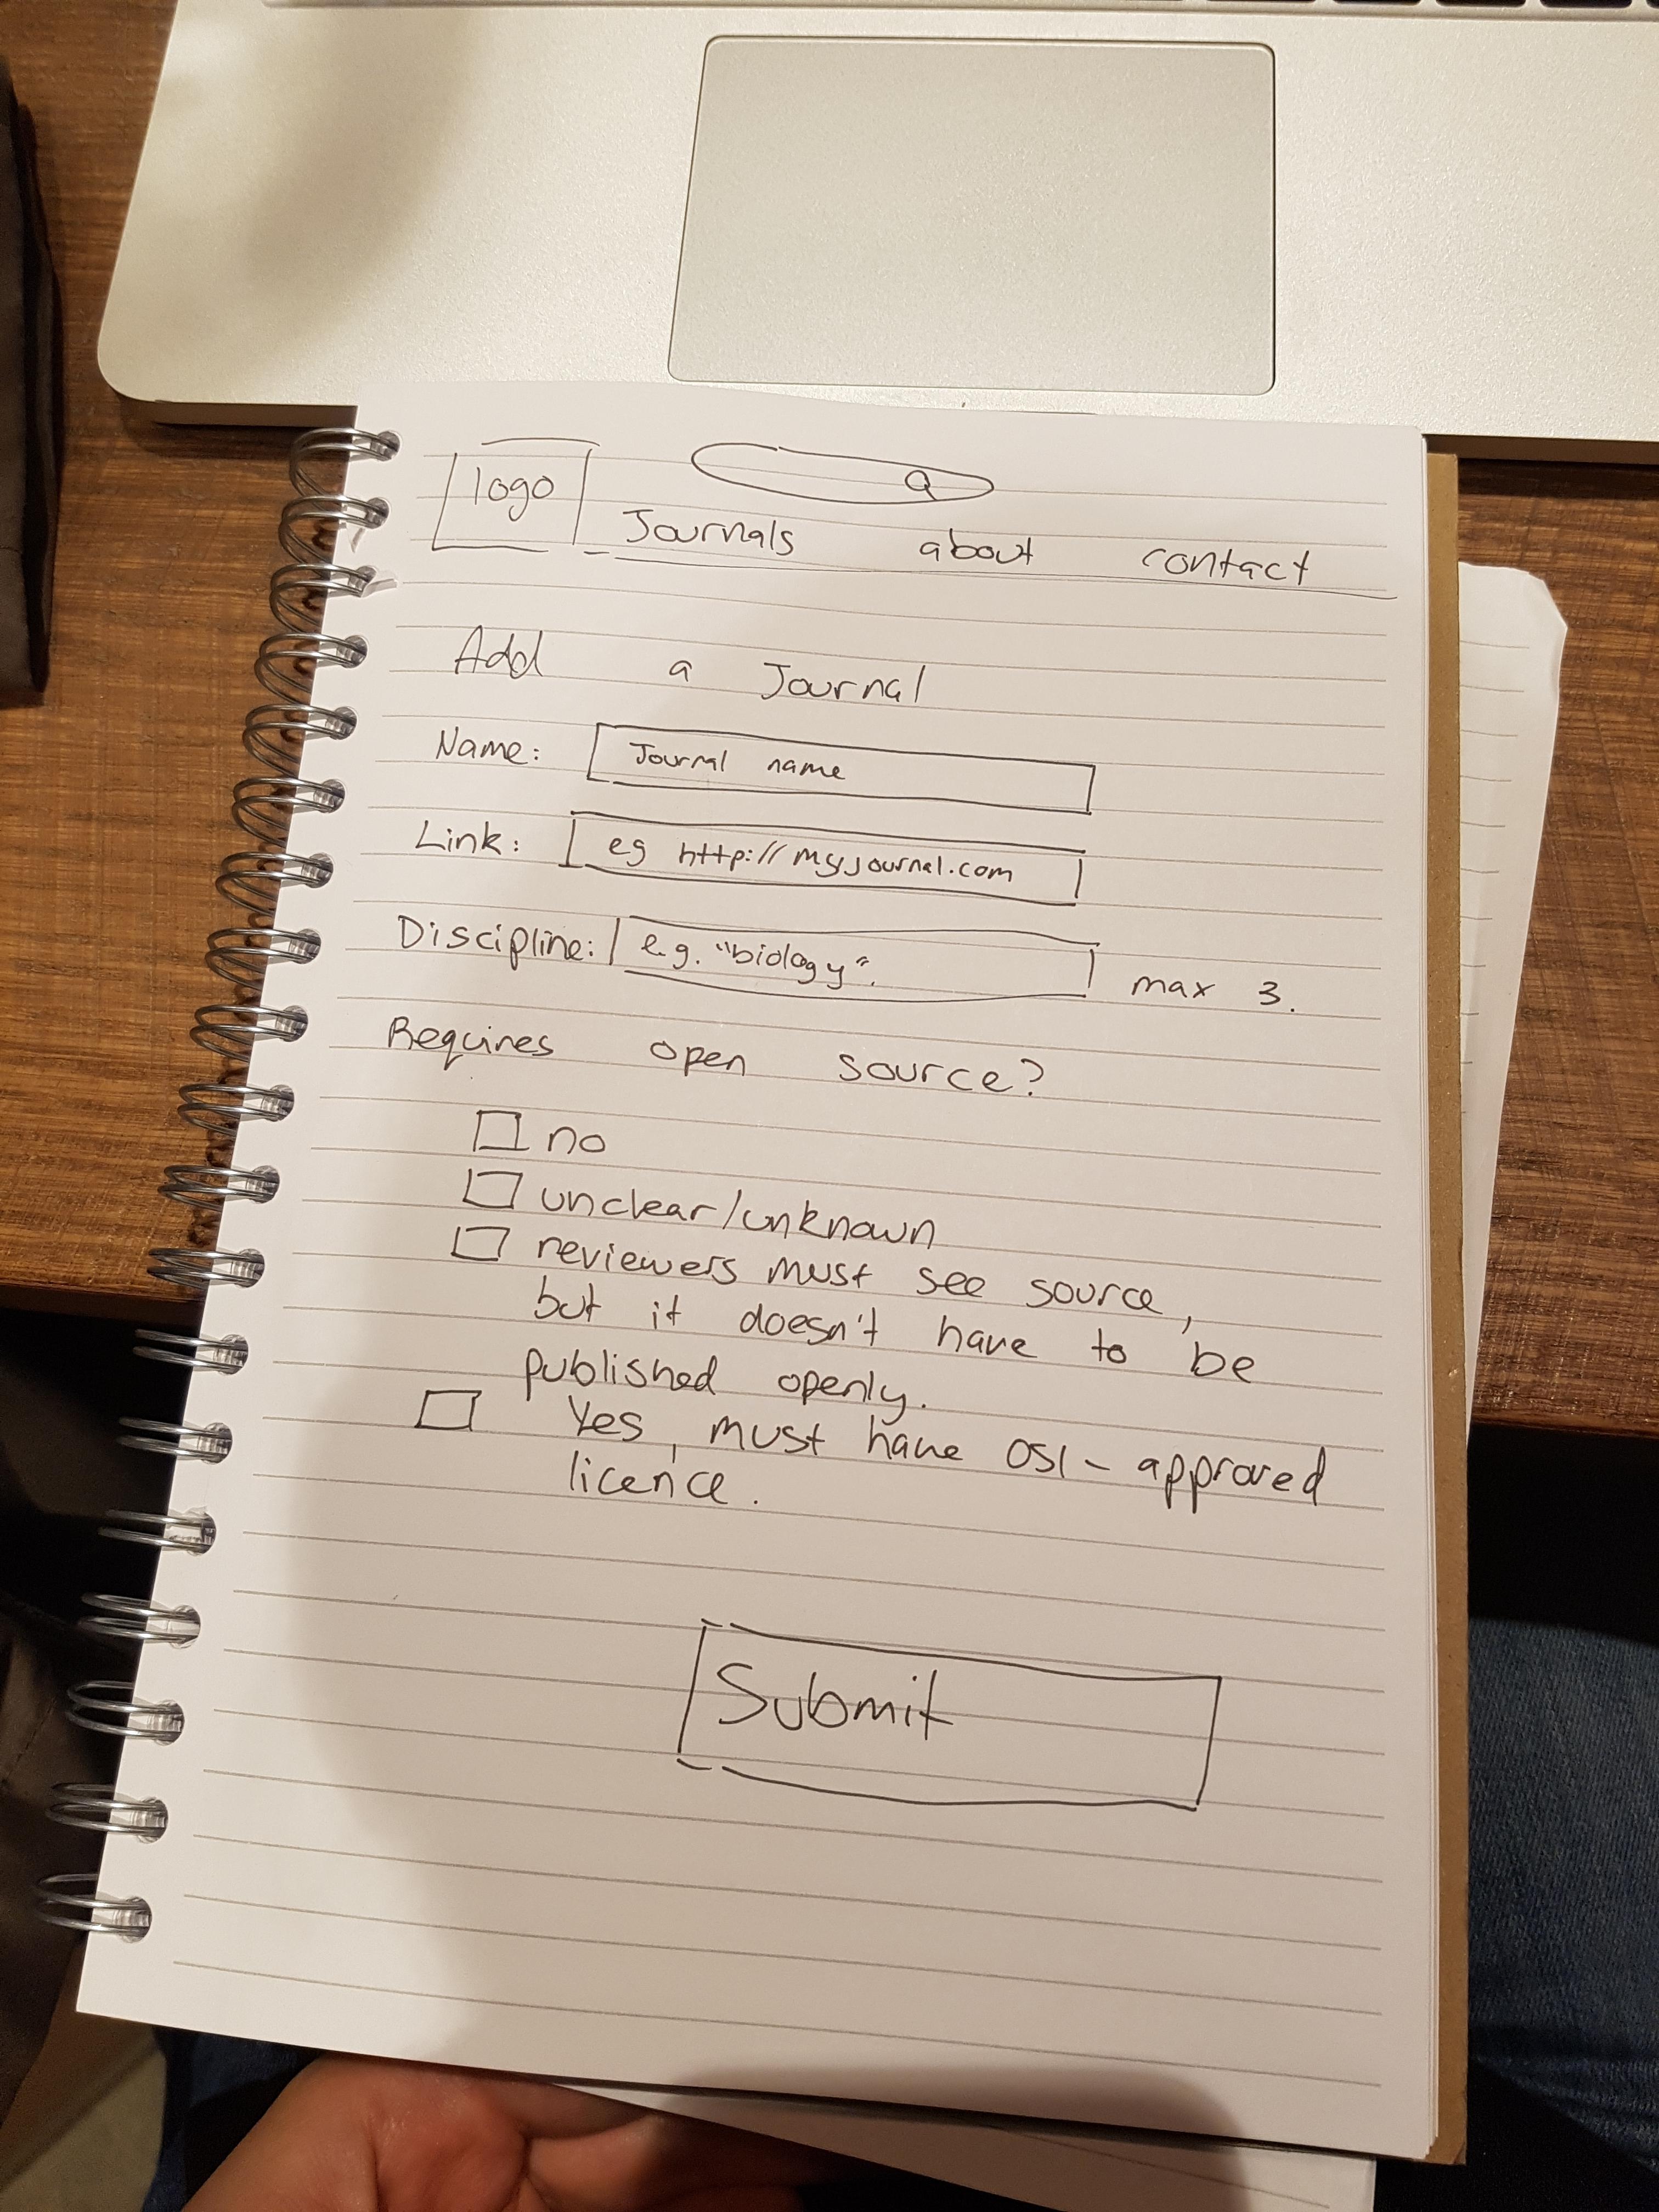 logo
Journals about contact
Add a Journal
Name: Journal name
Link: eg http://myjournal.com
Discipline: e.g. "biology". max 3.
Requires open source?
no
unclear/unknown
reviewers must see source,
but it doesn't have to be
published openly.
Yes, must have OSI-approved
licence.
Submit